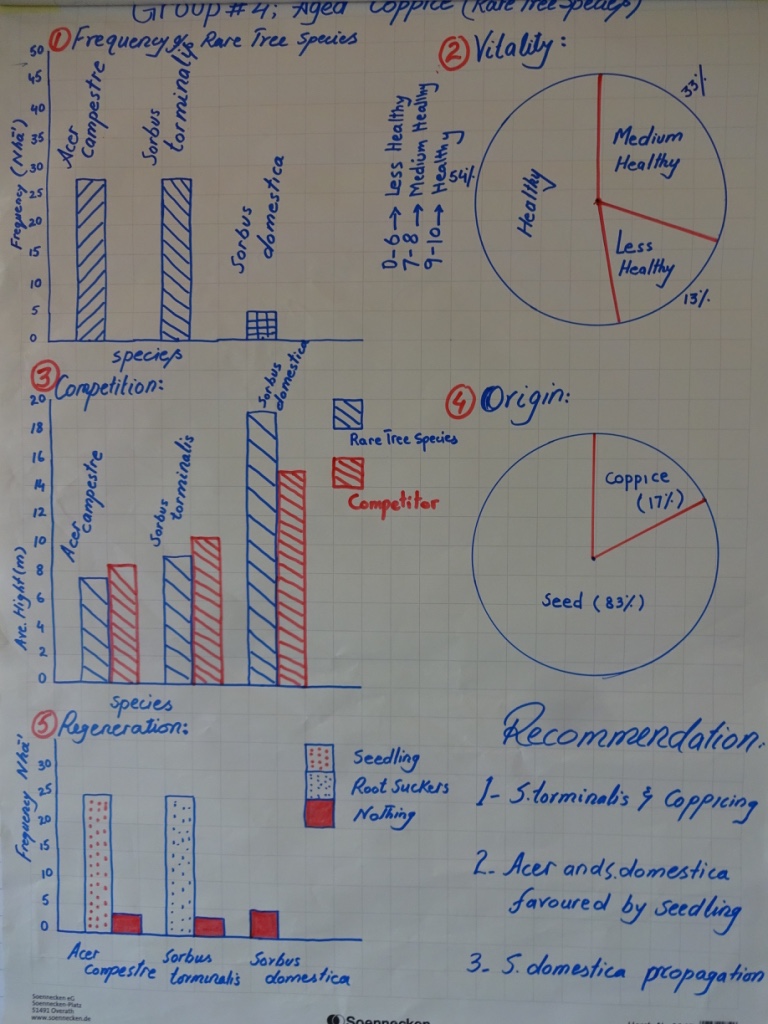 Group #4; Aged Coppice (Rare Tree Species)
① Frequency of Rare Tree Species
Frequency (Nhā¹)
50
45
40
35
30
25
20
15
10
5
0
Acer campestre
Sorbus torminalis
Sorbus domestica
species
② Vitality:
0-6 → Less Healthy
7-8 → Medium Healthy
9-10 → Healthy
54%
Healthy
33%
Medium
Healthy
Less
Healthy
13%
③ Competition:
Ave. Hight (m)
20
18
16
14
12
10
8
6
4
2
0
Acer campestre
Sorbus torminalis
Sorbus domestica
Rare Tree Species
Competitor
species
④ Origin:
Coppice
(17%)
Seed (83%)
⑤ Regeneration:
Frequency Nhā¹
30
25
20
15
10
5
0
Seedling
Root Suckers
Nothing
Acer
compestre
Sorbus
torminalis
Sorbus
domestica
Recommendation:
1- S.torminalis & Coppicing
2- Acer and S.domestica
favoured by seedling
3- S. domestica propagation
Soennecken eG
Soennecken-Platz
51491 Overath
www.soennecken.de
Soennecken